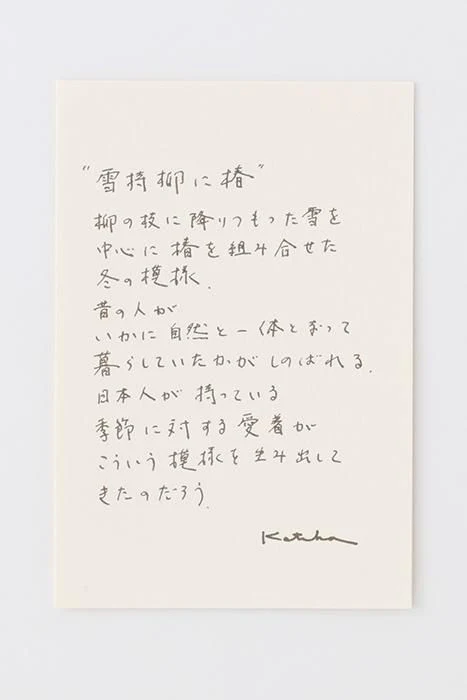 “雪持柳に椿”
柳の枝に降りつもった雪を
中心に椿を組み合せた
冬の模様.
昔の人が
いかに自然と一体となって
暮らしていたかがしのばれる.
日本人が持っている
季節に対する愛着が
こういう模様を生み出して
きたのだろう.